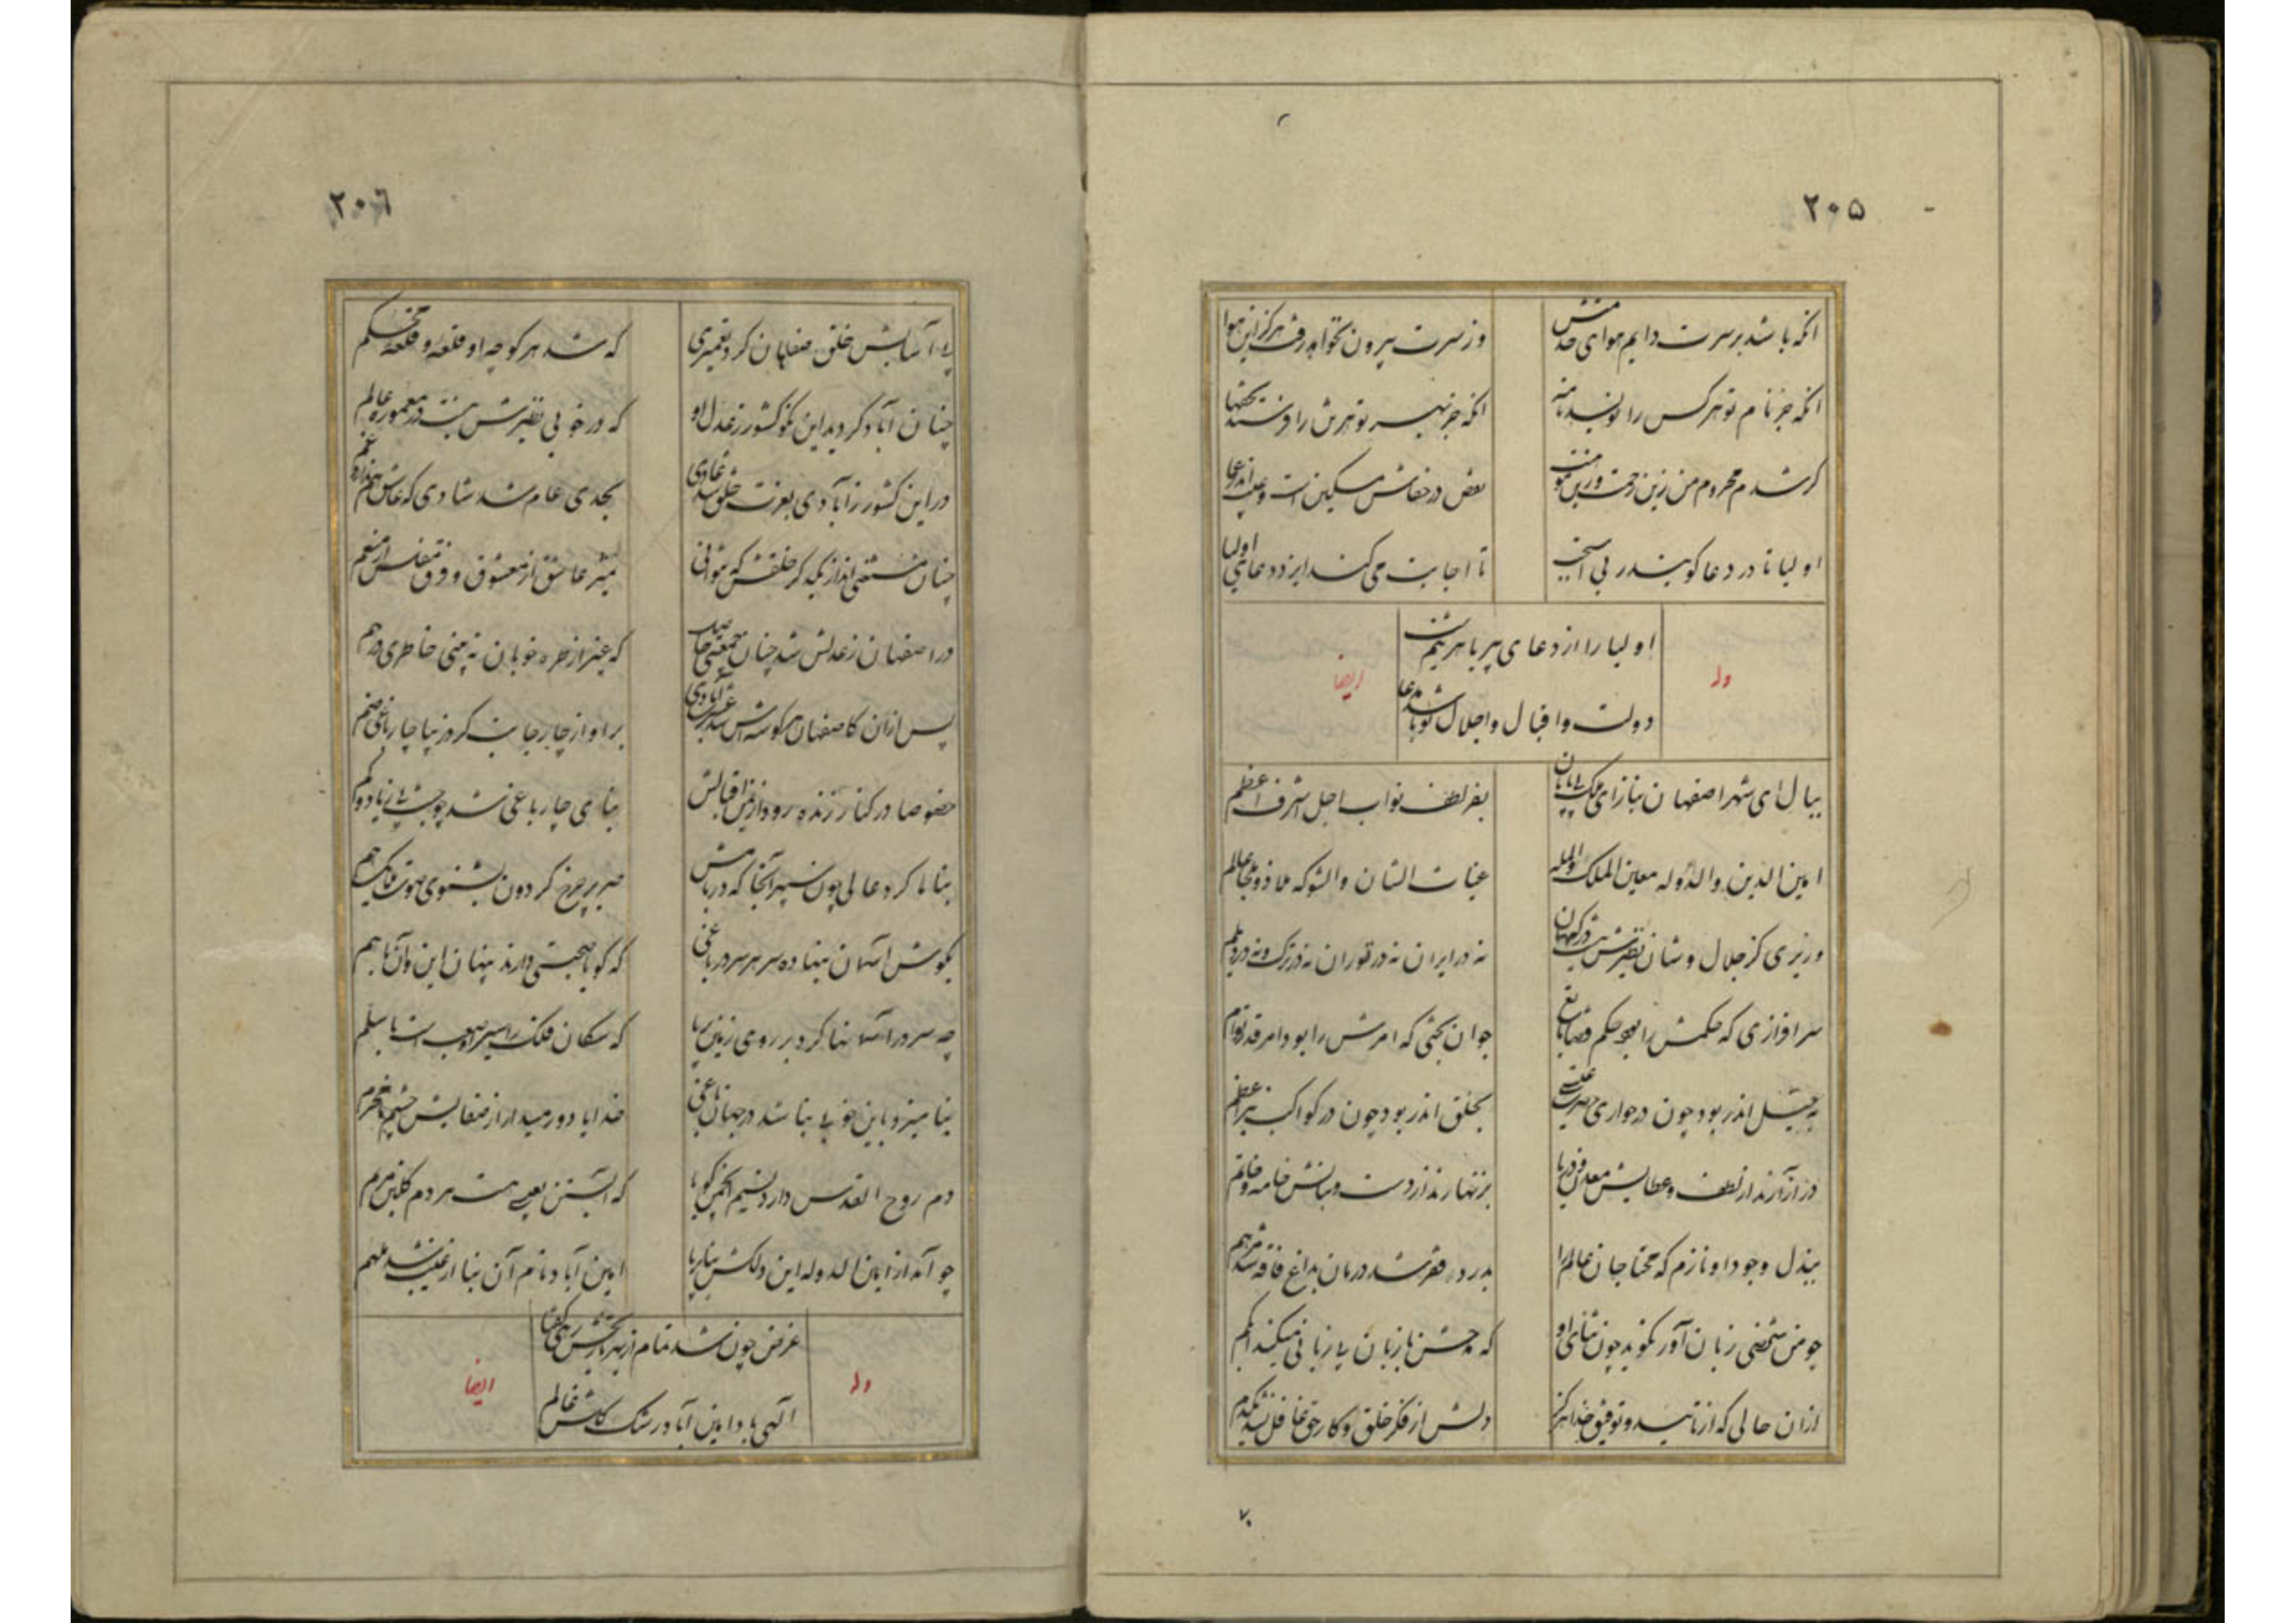 ۲۰۵
انکه باشد بر سرت دایم هوای خدمتش
وز سرت بیرون نخواهد رفت هرکز این هوا
انکه جز نام تو هرکس را نویسد نامه
انکه جز بهر تو هرش را فرستد تحفها
کر شدم محروم من زین زحمت و زین
بعض در خفاش مسکین است و عیب اندر
اولیا تا در دعا کویند ربی استجب
تا اجابت می کند ایزد دعای اولیا
وله
اولیا را از دعای پیر با هر
ایضا
دولت و اقبال و اجلال تو باشد مدعا
ببال ای شهر اصفهان بناز ای ملک
بفر لطف نواب اجل اشرف اعظم
امین الدین والدوله معین الملک والمله
غیاث الشان والشوکه ملاذ و ملجا عالم
وزیری کز جلال و شان نظیرش نیست در کیهان
نه در ایران نه در توران نه در ترک و نه در دیلم
سرافرازی که حکمش را بود حکم قضا تابع
جوان بختی که امرش را بود امر قدر توام
به خیل اندر بود چون در حواری حضرت عیسی
بخلق اندر بود چون در کواکب نیر اعظم
در آزارند از لطف و عطایش معدن و دریا
بزنهارند از دست و بنانش خامه و خاتم
ببذل وجود او نازم که محتاجان عالم را
بدرد فقر شد درمان بداغ فاقه شد مرهم
چو من شخصی زبان آور نکوید چون ثنای او
که چشن با زبان بی زبانی میکند ابکم
از ان حالی که از تایید و توفیق خدا هرکز
دلش از فکر خلق و کار حق غافل نشد یکدم
۲۰٦
پی آسایش خلق صفاهان کرد تعمیری
که شد هر کوچه او قلعه و قلعه محکم
چنان آباد کردید این نکو کشور ز عدل او
که در خوبی نظیرش نیست در معموره عالم
در این کشور ز آبادی بعزت خلق شد عادی
بحدی عام شد شادی که عاشق هم ندارد غم
چنان مستغنی اند از یکدکر خلقش که نتوانی
تمیز عاشق از معشوق و فرق مفلس از منعم
در اصفهان ز عدلش شد چنان جمعیتی حاصل
که غیر از طره خوبان نه بینی خاطری درهم
پس از ان کاصفهان هر کوشه اش شد غیرت آبادی
بر او از چار جانب کرد بر پا چار باغی ضم
خصوصا در کنار زنده رود از یمن اقبالش
بنای چار باغی شد چو جنت بی زیاد و کم
بناها کرد عالی چون سپهر آنجا که در بامش
صریر چرخ کردون بشنوی صوت ملایک هم
بکوش آسمان بنهاده سر هر سر در باغی
که کویا صحبتی دارند پنهان این و آن با هم
چه سردر آسمانها کرد بر روی زمین بر پا
که سکان فلک را سیر او صعب است با سلم
بنامیزد باین خوبی بنا شد در جهان باغی
خدایا دور میدار از صفایش چشم نامحرم
دم روح القدس دارد نسیم انجمن کویا
که آبستن بعیسی هست هر دم کلبن مریم
چو آمد از امین الدوله این دلکش بنا بر پا
امین آباد نام آن بنا از غیب شد ملهم
وله
غرض چون شد تمام از بهر تاریخش رهی کفتا
ایضا
الهی باد امین آباد رشک کلشن عالم